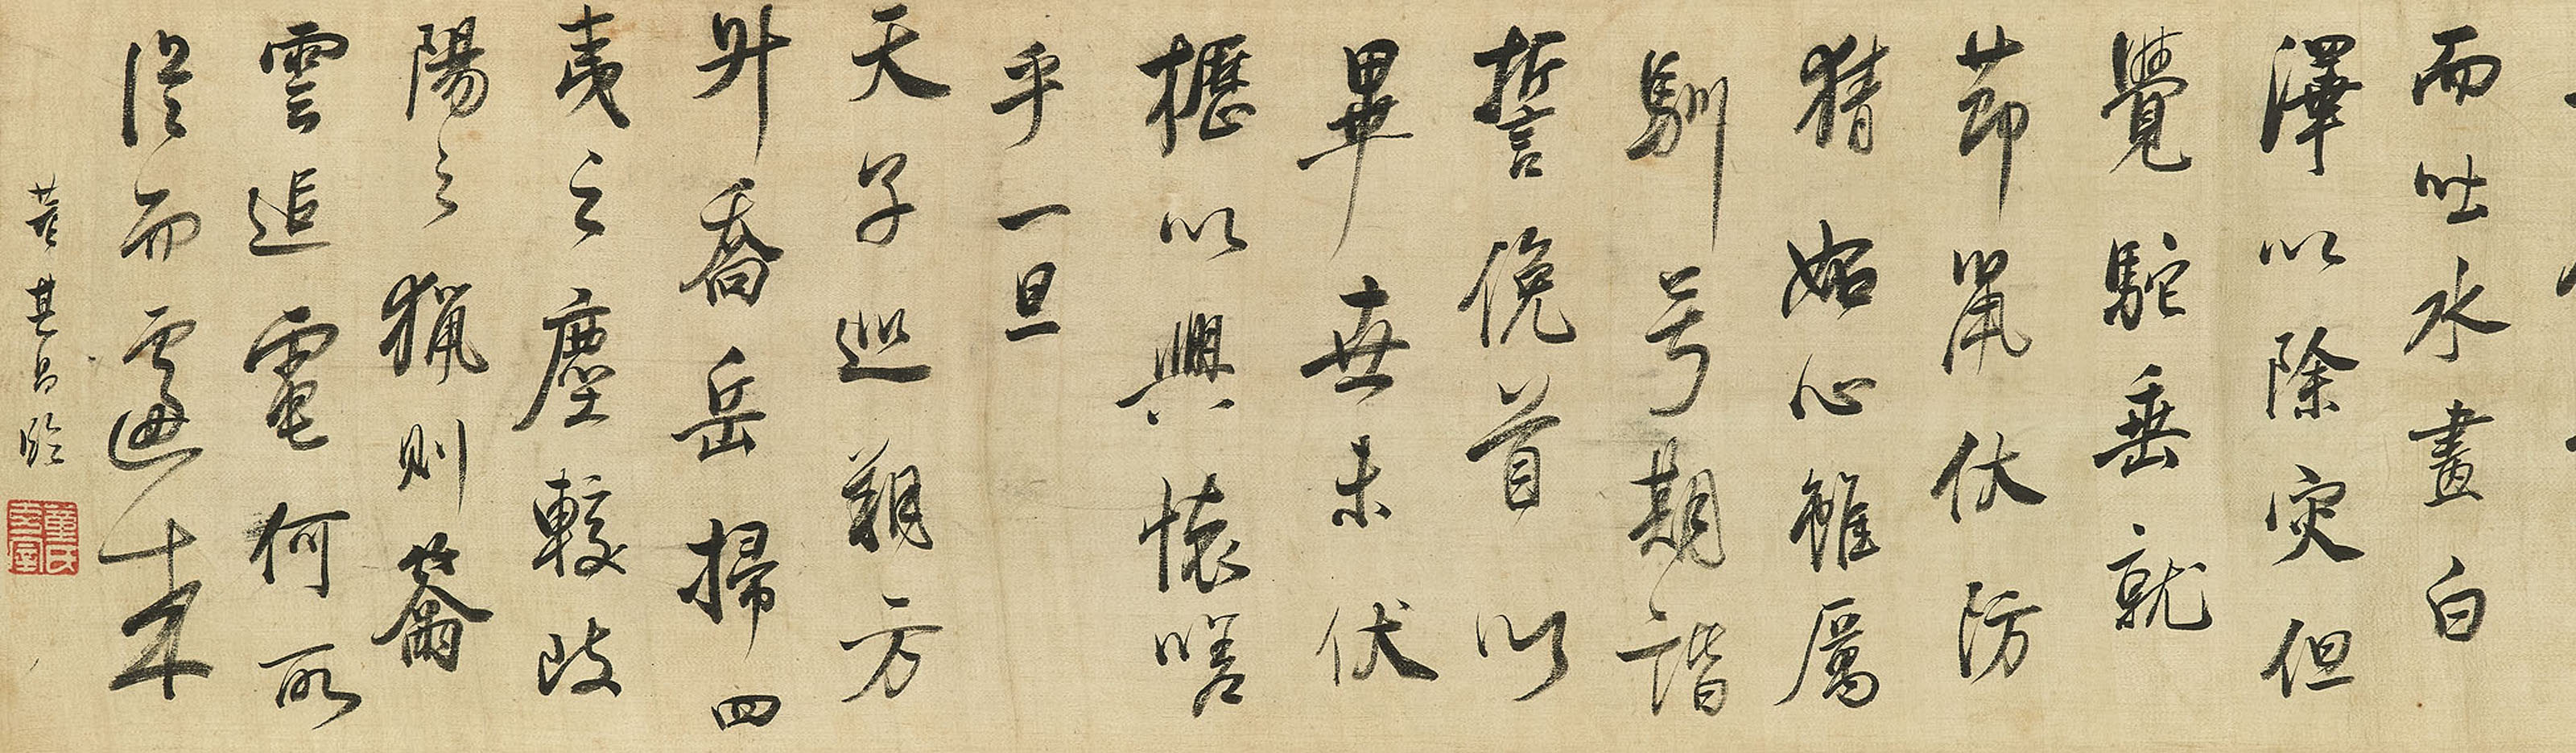 而吐水畫白
澤以除灾但
覺駝垂就
節鼠伏防
猜妬心雖厲
馴号期諧
誓俛首以
畢世未伏
櫪以興懷嗟
乎一旦
天子巡朔方
升喬岳掃四
夷之塵較岐
陽之獵則籋
雲追電何所
從而遽來
董其昌臨
董氏玄宰